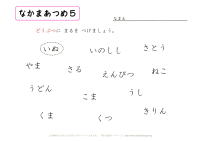 なかまあつめ５
なまえ
どうぶつに まるを つけましょう。
いぬ いのしし さとう
やま さる えんぴつ ねこ
うどん こま うし
くま くつ きりん